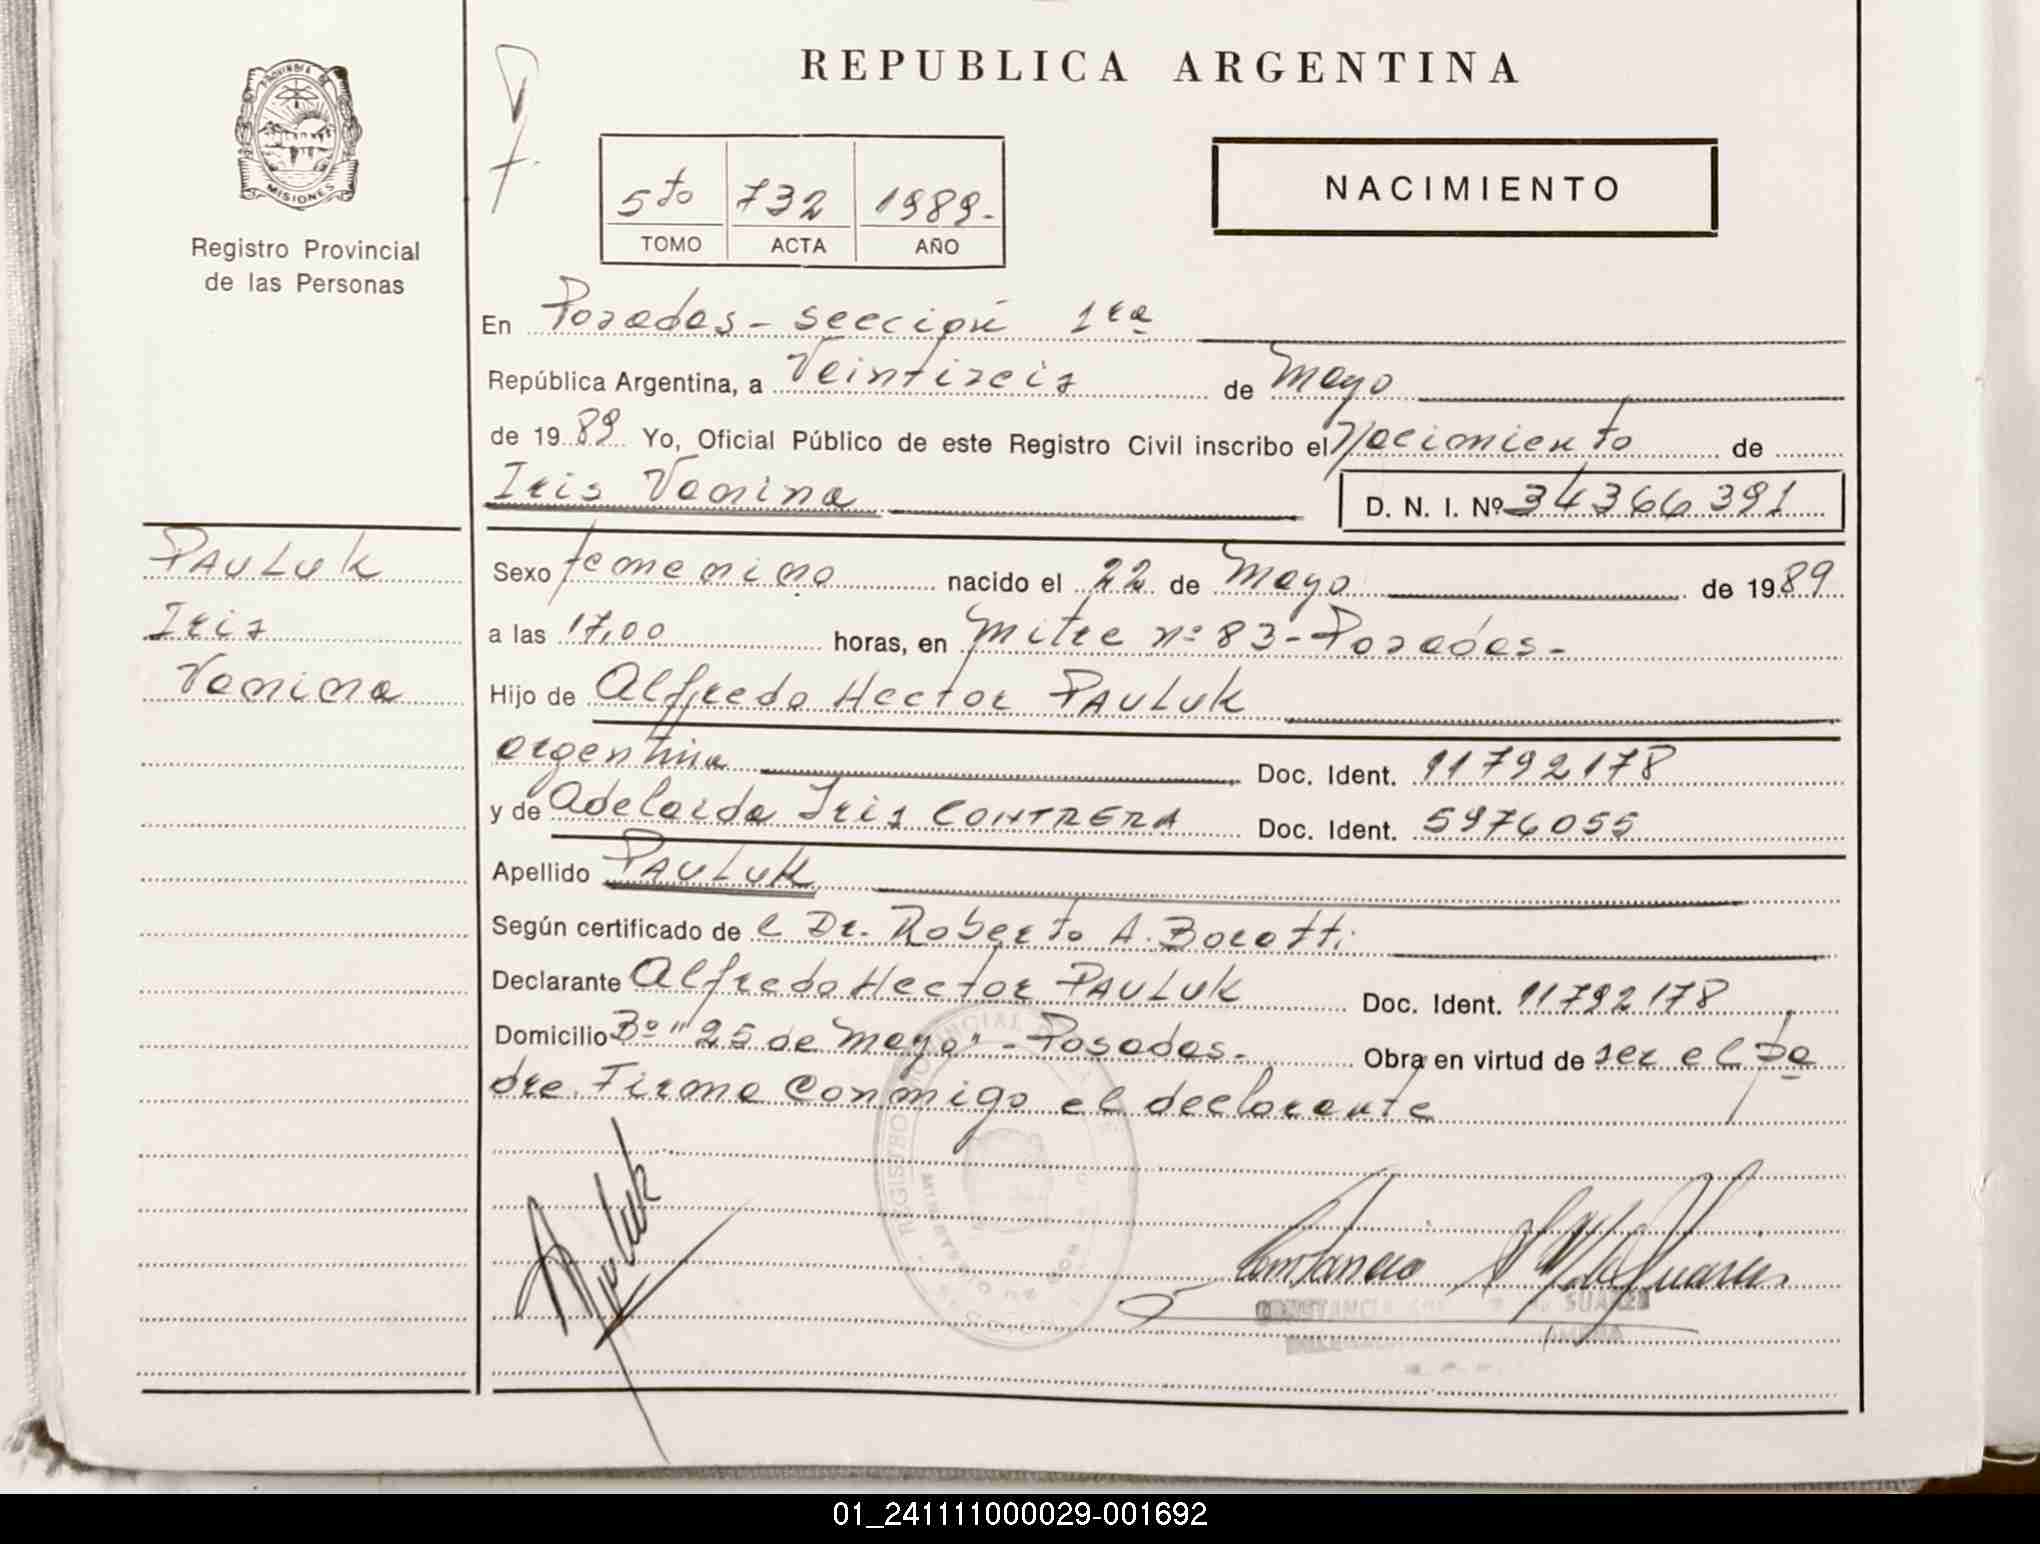 PROVINCIA DE
MISIONES
Registro Provincial
de las Personas
REPUBLICA ARGENTINA
5to 732 1989-
TOMO ACTA AÑO
NACIMIENTO
En Posadas - sección 1ra
República Argentina, a Veintiseis de Mayo
de 1989 Yo, Oficial Público de este Registro Civil inscribo el Nacimiento de
Iris Vanina D. N. I. Nº 34366391
PAULUK
Iris
Vanina
Sexo femenino nacido el 22 de Mayo de 1989
a las 17,00 horas, en Mitre nº 83 - Posadas -
Hijo de Alfredo Hector PAULUK
argentina Doc. Ident. 11792178
y de Adelaida Iris CONTRERA Doc. Ident. 5976055
Apellido PAULUK
Según certificado de el Dr. Roberto A.
Declarante Alfredo Hector PAULUK Doc. Ident. 11792178
Domicilio Bº "25 de Mayo" - Posadas - Obra en virtud de ser el pa
dre. Firma conmigo el declarante
Pauluk
Constancia Suarez
CONSTANCIA SUAREZ
01_241111000029-001692